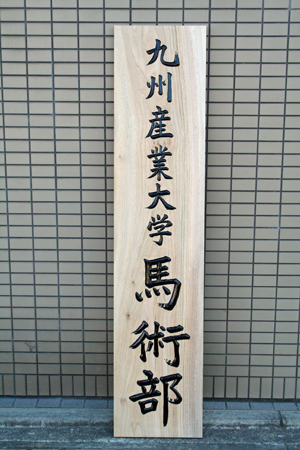 九州産業大学馬術部